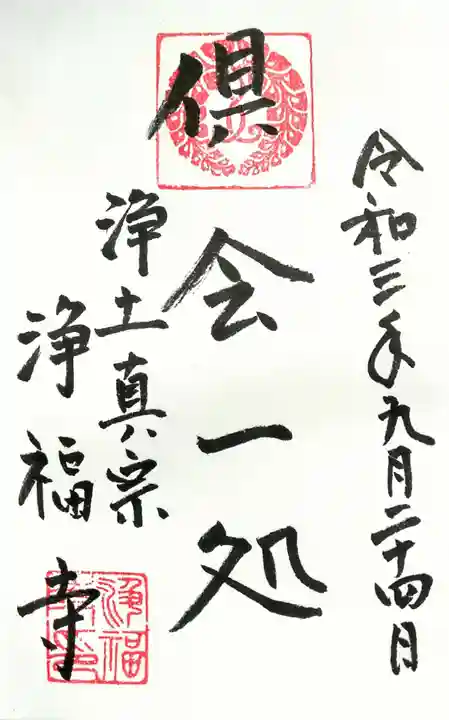 令和三年九月二十四日
倶会一処
浄土真宗
浄福寺
浄福